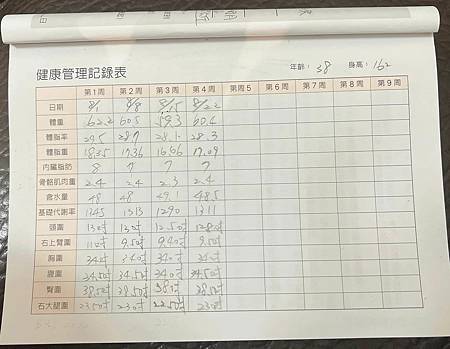 健康管理記錄表 年齡：38 身高：162
第1周 第2周 第3周 第4周 第周5 第周6 第周7 第周8 第周9
日期 8/1 8/8 8/15 8/22
體重 62.2 60.5 59.3 60.4
體脂率 29.5 28.7 28.1 28.3
體脂重 18.35 17.36 16.66 17.09
內臟脂肪 8 7 7 7
骨骼肌肉量 2.4 2.4 2.3 2.4
含水量 48 48 49.1 48.5
基礎代謝率 1345 1313 1290 1311
頸圍 13吋 13吋 12.5吋 12.8吋
右上臂圍 11吋 9.5吋 9.4吋 9.5吋
胸圍 34吋 34吋 34吋 34吋
腹圍 34.5吋 34.5吋 34吋 34.5吋
臀圍 38.5吋 38.5吋 38吋 38.5吋
右大腿圍 23.5吋 23吋 22.5吋 23吋